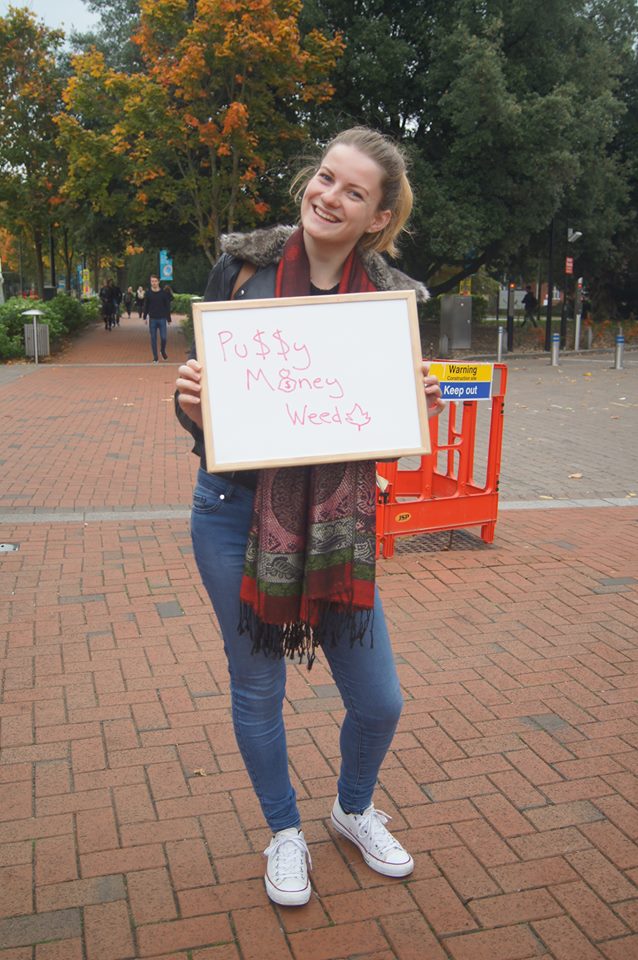 Pu$$y
Money
Weed
Warning
Construction site
Keep out
JSP